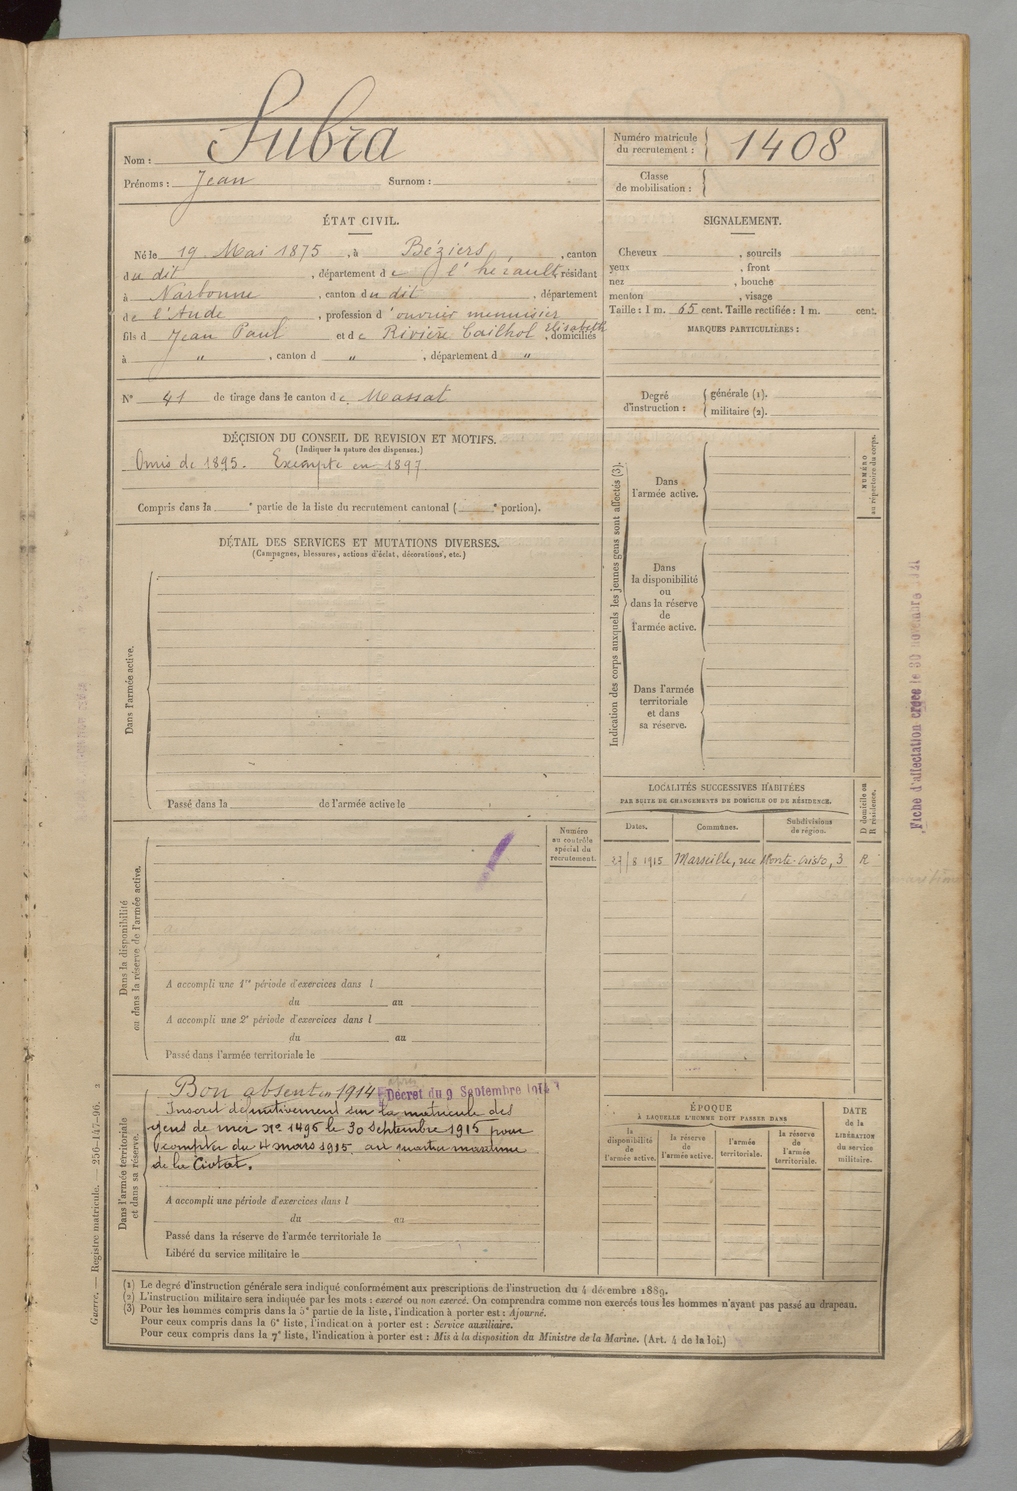 Nom : Subra
Prénoms : Jean Surnom :
Numéro matricule du recrutement : 1408
Classe de mobilisation :
ÉTAT CIVIL.
Né le 19 Mai 1875, à Béziers, canton
du dit, département de l'hérault, résidant
à Narbonne, canton du dit, département
de l'Aude, profession d'ouvrier menuisier
fils d Jean Paul et de Rivière Cailhol Elisabeth, domiciliés
à ", canton d ", département d "
N° 41 de tirage dans le canton de Massat
SIGNALEMENT.
Cheveux , sourcils
yeux , front
nez , bouche
menton , visage
Taille : 1 m. 65 cent. Taille rectifiée : 1 m. cent.
MARQUES PARTICULIÈRES :
Degré d'instruction : générale (1).
militaire (2).
DÉCISION DU CONSEIL DE REVISION ET MOTIFS.
(Indiquer la nature des dispenses.)
Omis de 1895. Exempté en 1897
Compris dans la e partie de la liste du recrutement cantonal ( e portion).
DÉTAIL DES SERVICES ET MUTATIONS DIVERSES.
(Campagnes, blessures, actions d'éclat, décorations, etc.)
Dans l'armée active.
Passé dans la de l'armée active le
Indication des corps auxquels les jeunes gens sont affectés (3).
NUMÉRO au répertoire du corps.
Dans
l'armée active.
Dans
la disponibilité
ou
dans la réserve
de
l'armée active.
Dans l'armée
territoriale
et dans
sa réserve.
Fiche d'affectation créée le 30 novembre
LOCALITÉS SUCCESSIVES HABITÉES
PAR SUITE DE CHANGEMENTS DE DOMICILE OU DE RÉSIDENCE.
D domicile ou R résidence.
Dates. Communes. Subdivisions de région.
27/8 1915 Marseille, rue Monte-Cristo, 3 R
Dans la disponibilité
ou dans la réserve de l'armée active.
Numéro
au contrôle
spécial du
recrutement.
A accompli une 1re période d'exercices dans l
du au
A accompli une 2e période d'exercices dans l
du au
Passé dans l'armée territoriale le
Dans l'armée territoriale
et dans sa réserve.
Bon absent en 1914 après Décret du 9 Septembre 1914
Inscrit définitivement sur la matricule des
gens de mer N° 1496 le 30 Septembre 1915 pour
compter du 4 mars 1915 au quartier maritime
de la Ciotat.
A accompli une période d'exercices dans l
du au
Passé dans la réserve de l'armée territoriale le
Libéré du service militaire le
ÉPOQUE
À LAQUELLE L'HOMME DOIT PASSER DANS
la disponibilité de l'armée active.
la réserve de l'armée active.
l'armée territoriale.
la réserve de l'armée territoriale.
DATE de la LIBÉRATION du service militaire.
Guerre. — Registre matricule. — 256-147-96.
(1) Le degré d'instruction générale sera indiqué conformément aux prescriptions de l'instruction du 4 décembre 1889.
(2) L'instruction militaire sera indiquée par les mots : exercé ou non exercé. On comprendra comme non exercés tous les hommes n'ayant pas passé au drapeau.
(3) Pour les hommes compris dans la 5e partie de la liste, l'indication à porter est : Ajourné.
Pour ceux compris dans la 6e liste, l'indication à porter est : Service auxiliaire.
Pour ceux compris dans la 7e liste, l'indication à porter est : Mis à la disposition du Ministre de la Marine. (Art. 4 de la loi.)